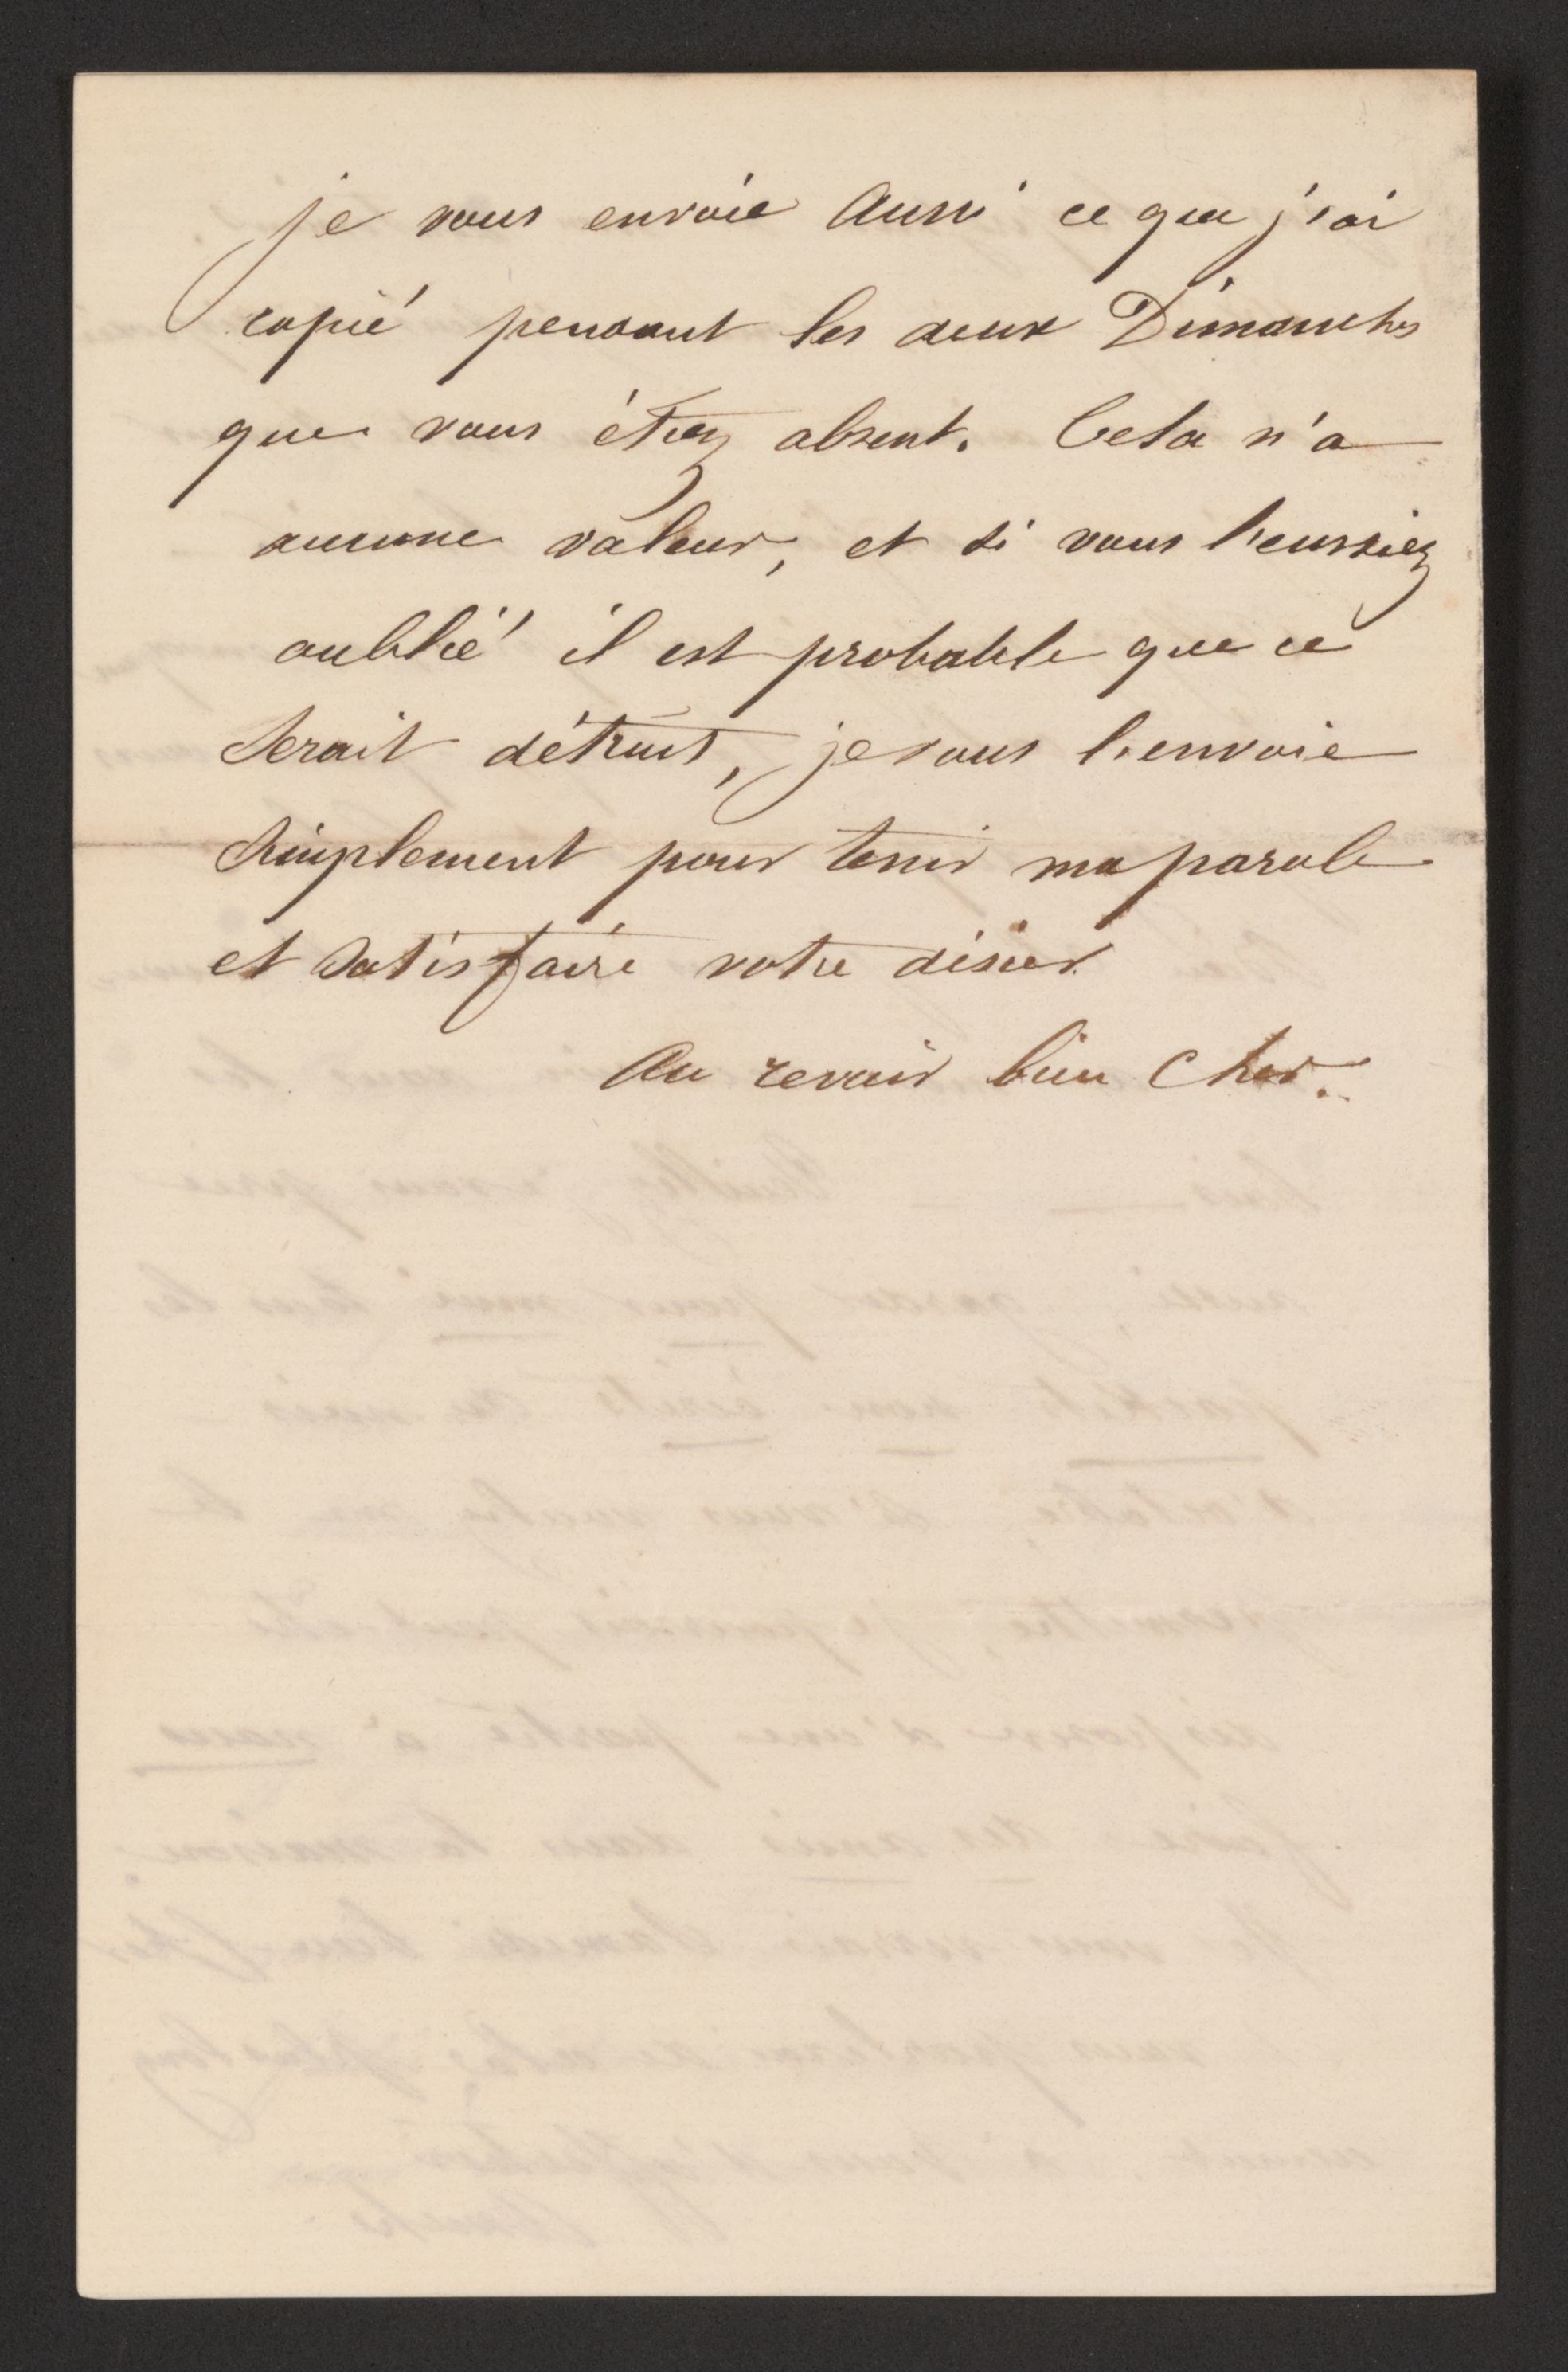 je vous envoie aussi ce que j'ai
copié pendant les deux Dimanches
que vous étiez absent. Cela n'a
aucune valeur, et si vous l'eussiez
oublié il est probable que ce
serait détruit, je vous l'envoie
simplement pour tenir ma parole
et satisfaire votre désier
Au revoir bien Cher.